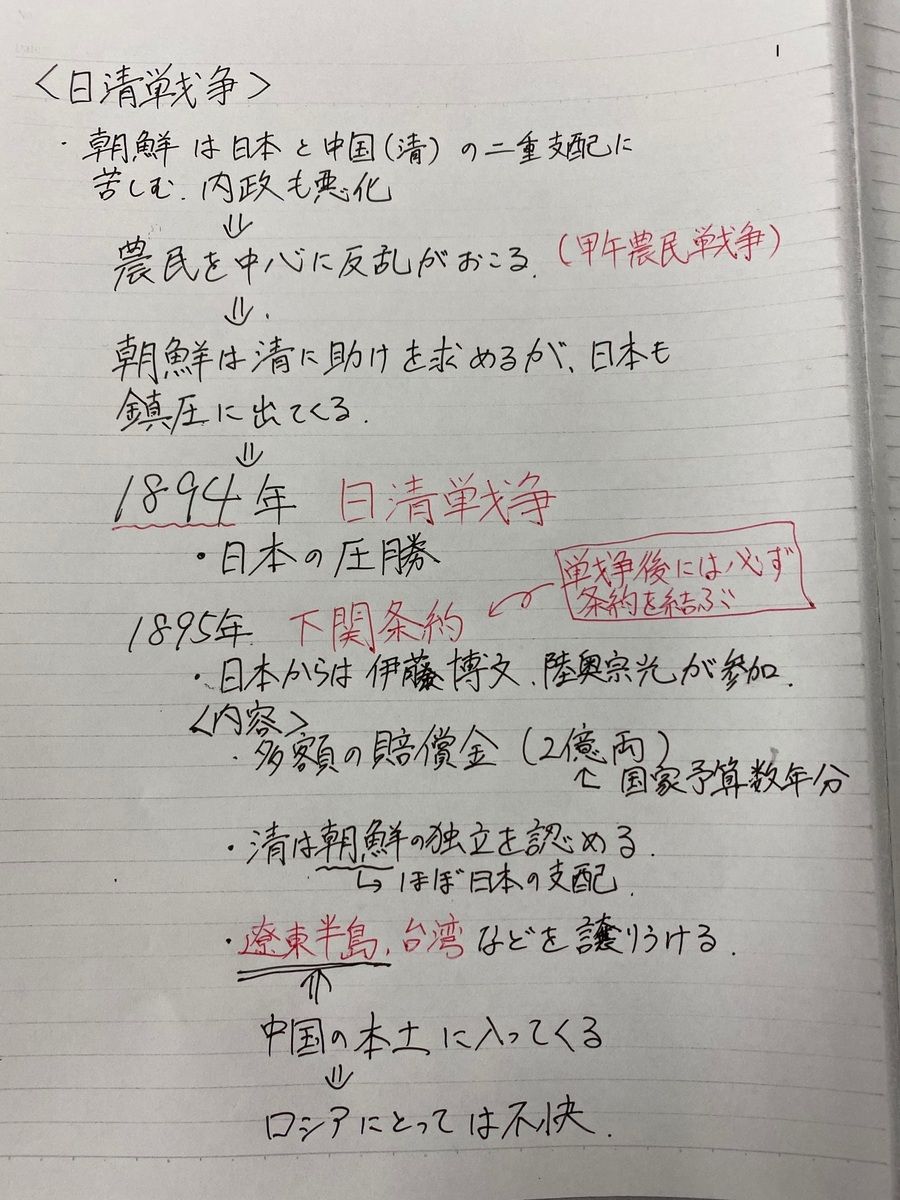 <日清戦争>
・朝鮮は日本と中国(清)の二重支配に
苦しむ. 内政も悪化
⇓
農民を中心に反乱がおこる. (甲午農民戦争)
⇓.
朝鮮は清に助けを求めるが、日本も
鎮圧に出てくる.
⇓
1894年 日清戦争
・日本の圧勝
戦争後には必ず
条約を結ぶ
1895年 下関条約
・日本からは伊藤博文、陸奥宗光が参加.
<内容>
・多額の賠償金(2億両)
国家予算数年分
・清は朝鮮の独立を認める.
↳ほぼ日本の支配.
・遼東半島、台湾などを譲りうける.
⇑
中国の本土に入ってくる
⇓
ロシアにとっては不快.